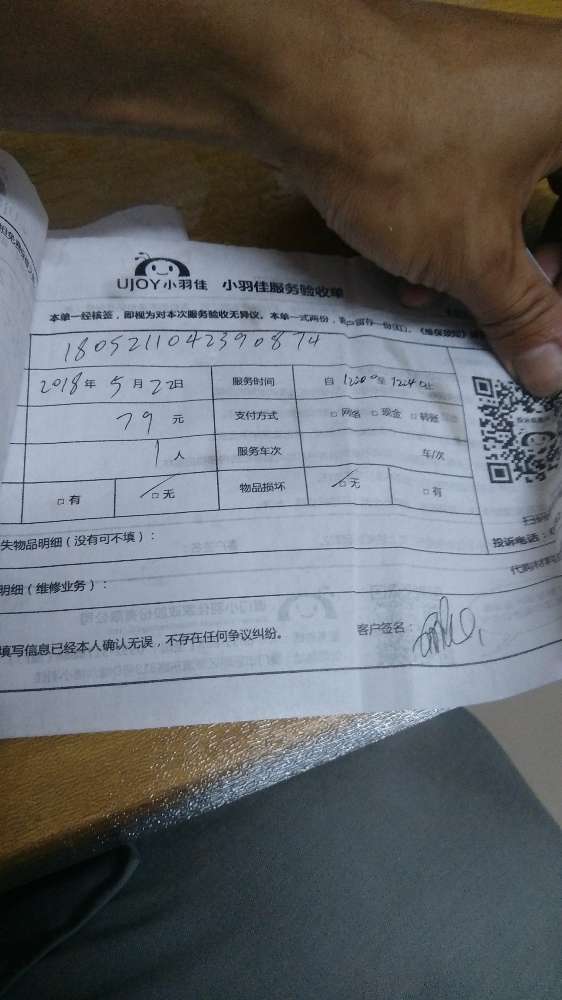 UJOY小羽佳 小羽佳服务验收单
本单一经核签，即视为对本次服务验收无异议。本单一式两份，
1805211042390874
2018年 5月22日 服务时间 自 1200 至
79 元 支付方式 □ 网络 □ 现金 □ 转账
1 人 服务车次 车/次
□ 有 □ 无 物品损坏 □ 无 □ 有
失物品明细（没有可不填）：
投诉电话：
明细（维修业务）：
填写信息已经本人确认无误，不存在任何争议纠纷。 客户签名：